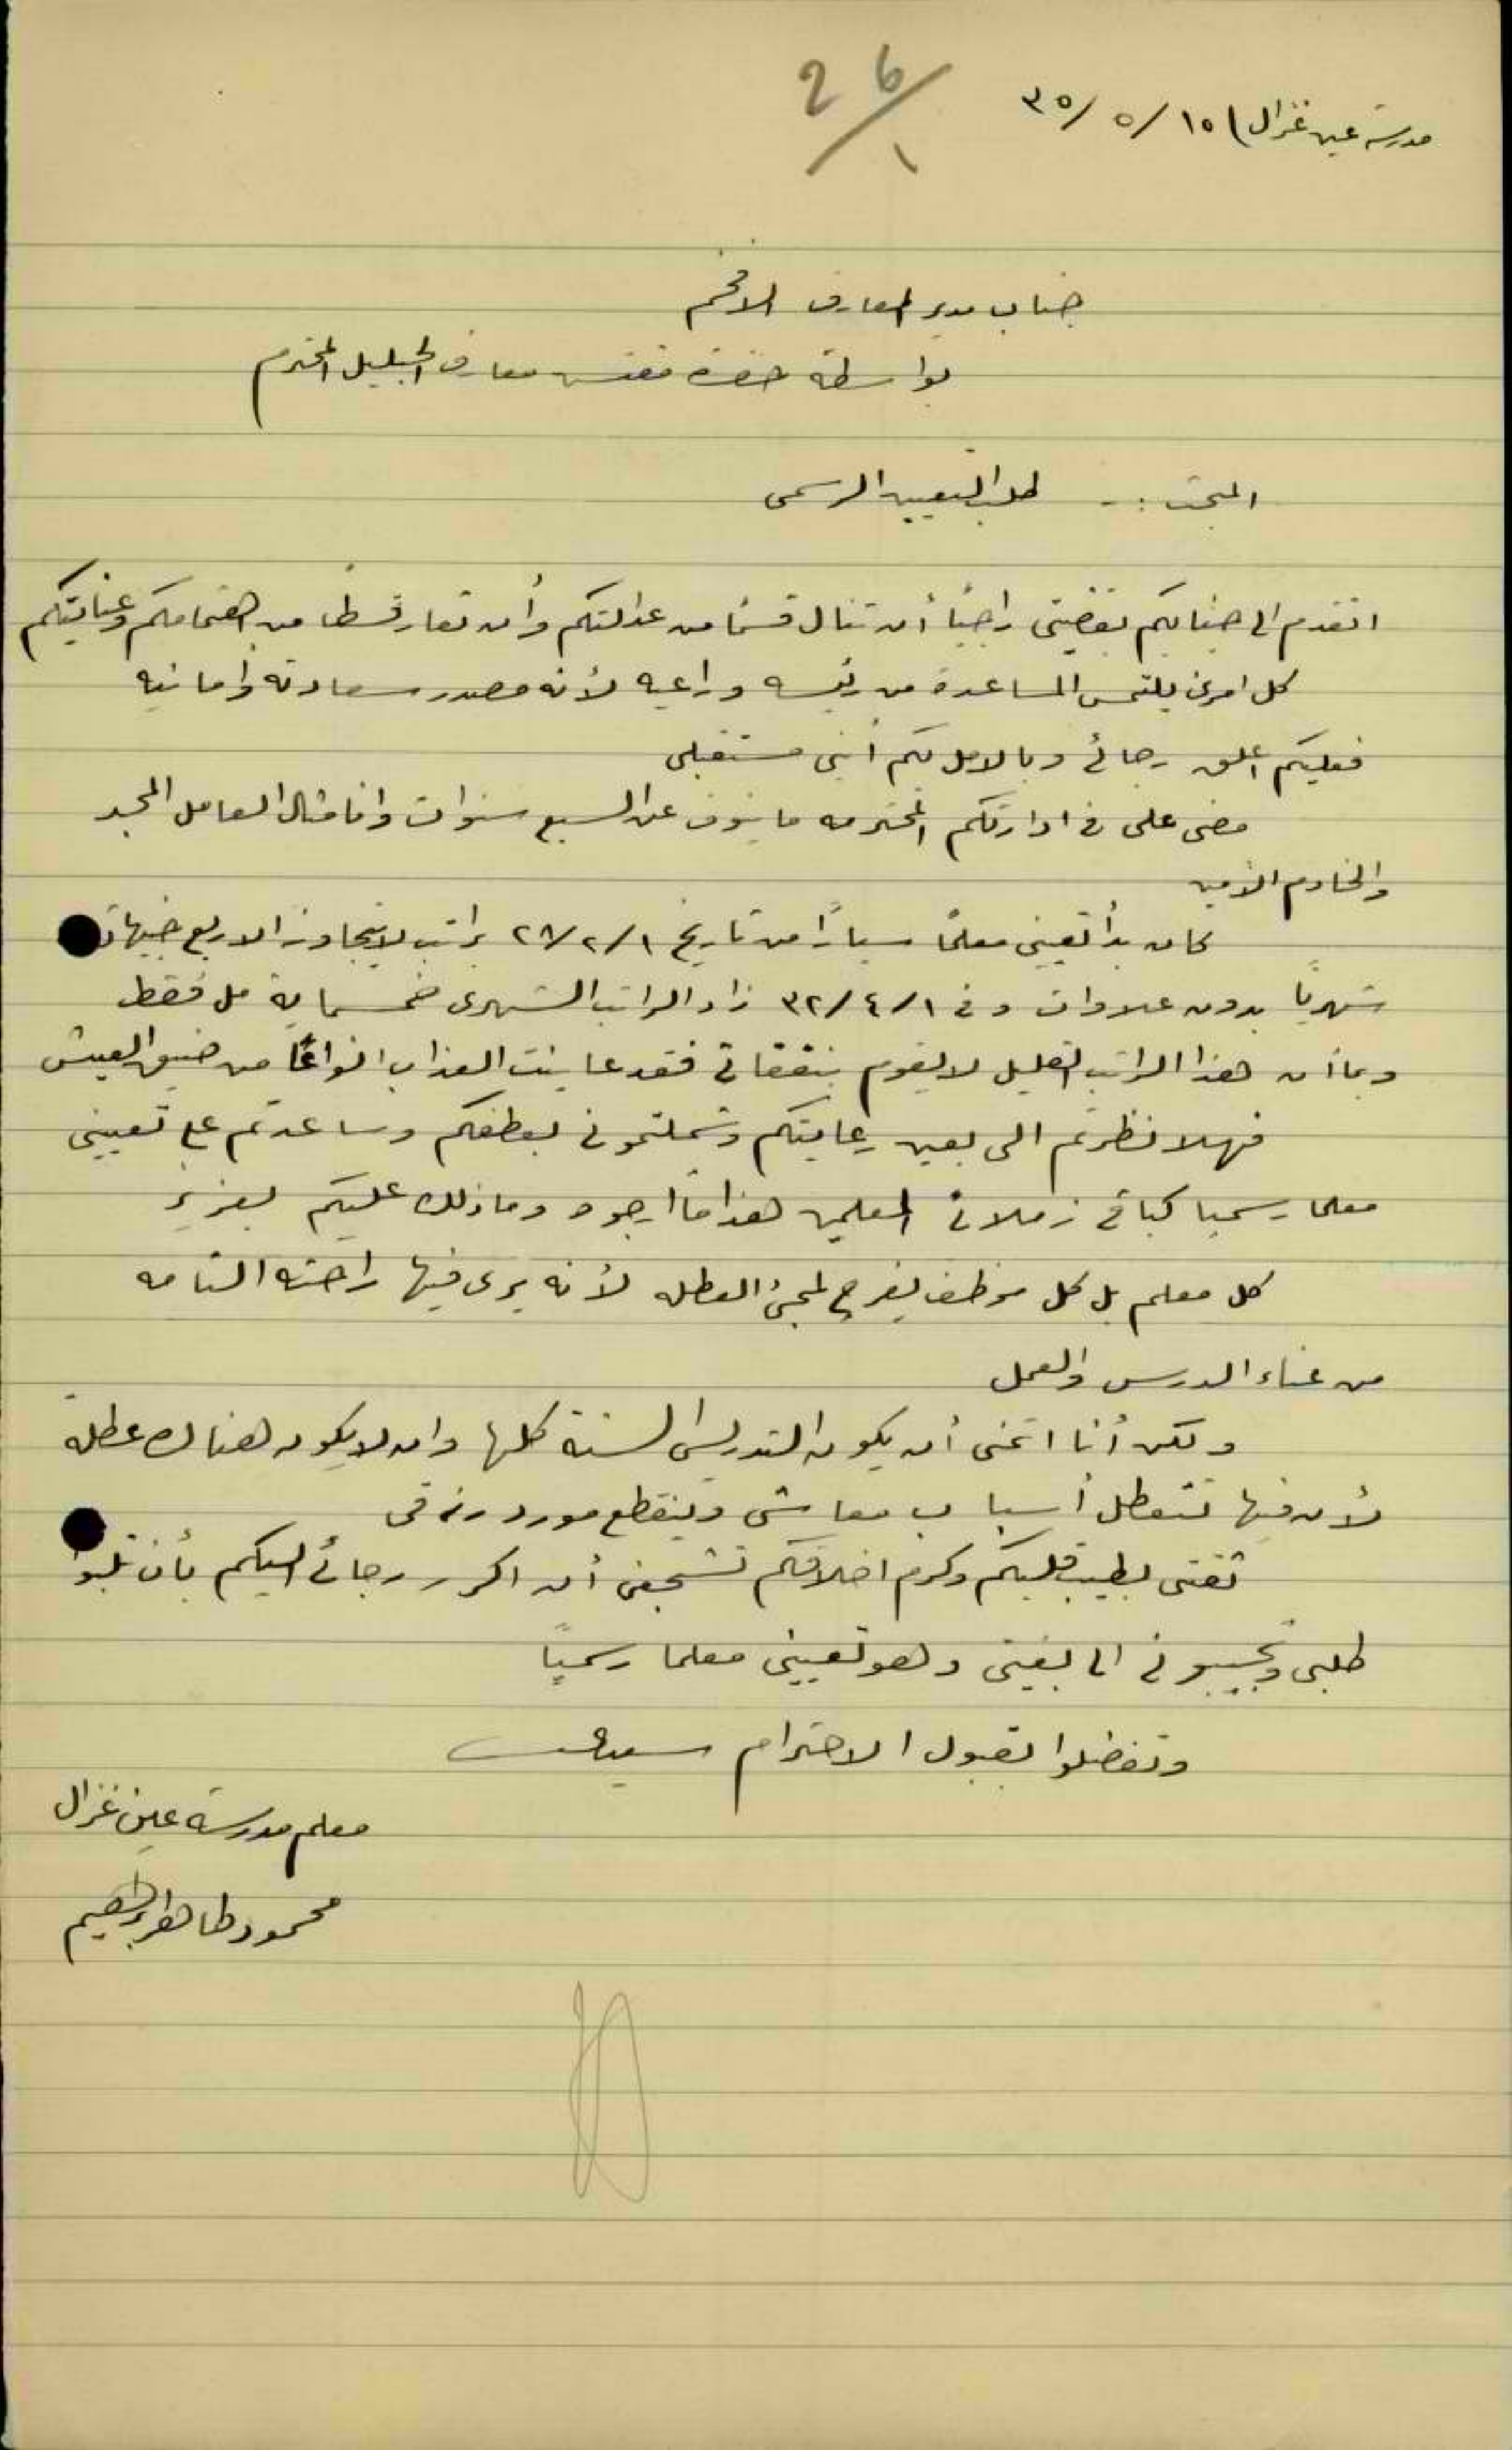 26/1
مدرسة عين غزال) ١٥/ ٥/ ٣٥
جناب مدير المعارف الافخم
بواسطة حضرة مفتش معارف الجليل المحترم
المبحث :- طلب التعيين الرسمي
اتقدم الى جنابكم بقضيتي راجيًا أن تنال قسمًا من عدالتكم وأن تعار قسطا من اهتمامكم وعنايتكم
كل امرئ يلتمس المساعدة من رئيسه وراعيه لأنه مصدر سعادته وأمانيه
فعليكم اعلق رجائي وبالامل بكم أبني مستقبلي
مضى علي في ادارتكم المحترمه ما ينوف عن السبع سنوات وانا مثال العامل المجد
والخادم الأمين
كان بدأ تعييني معلمًا سيارًا من تاريخ ١/ ٢/ ٢٨ براتب لا يتجاوز الاربع جنيهات
شهريًا بدون علاوات وفي ١/ ٤/ ٣٢ زاد الراتب الشهري خمسماية مل فقط
وبما أن هذا الراتب القليل لا يقوم بنفقاتي فقد عاينت العذاب انواعًا من ضيق العيش
فهلا نظرتم الي بعين رعايتكم وشملتموني بعطفكم وساعدتم على تعييني
معلما رسميا كباقي زملائي المعلمين هذا ما ارجوه وما ذلك عليكم بعزيز
كل معلم بل كل موظف يفرح لمجئ العطله لأنه يرى فيها راحته التامه
من عناء الدرس والعمل
ولكن أنا اتمنى أن يكون التدريس السنة كلها وان لا يكون هناك عطلة
لأن فيها تتعطل أسباب معاشي وينقطع مورد رزقي
ثقتي بطيب قلبكم وكرم اخلاقكم تشجعني أن اكرر رجائي اليكم بأن تلبوا
طلبي وتجيبوني الى بغيتي وهو تعييني معلما رسميًا
وتفضلوا بقبول الاحترام سيدي
معلم مدرسة عين غزال
محمود طاهر ابراهيم